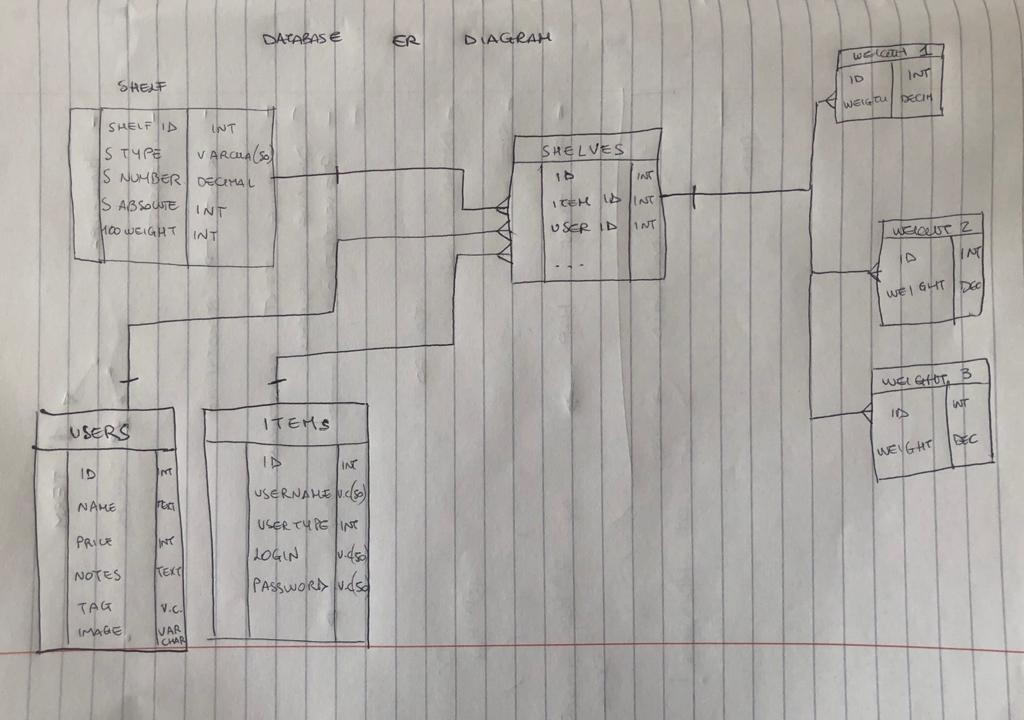 DATABASE ER DIAGRAM
SHELF
SHELF ID INT
S TYPE VARCHA(50)
S NUMBER DECIMAL
S ABSOLUTE INT
100 WEIGHT INT
SHELVES
ID INT
ITEM ID INT
USER ID INT
...
WEIGHT 1
ID INT
WEIGTH DECIM
WEIGHT 2
ID INT
WEIGHT DEC
WEIGHT 3
ID INT
WEIGHT DEC
USERS
ID INT
NAME TEXT
PRICE INT
NOTES TEXT
TAG V.C.
IMAGE VAR
CHAR
ITEMS
ID INT
USERNAME V.C(50)
USER TYPE INT
LOGIN V.C(50)
PASSWORD V.C(50)